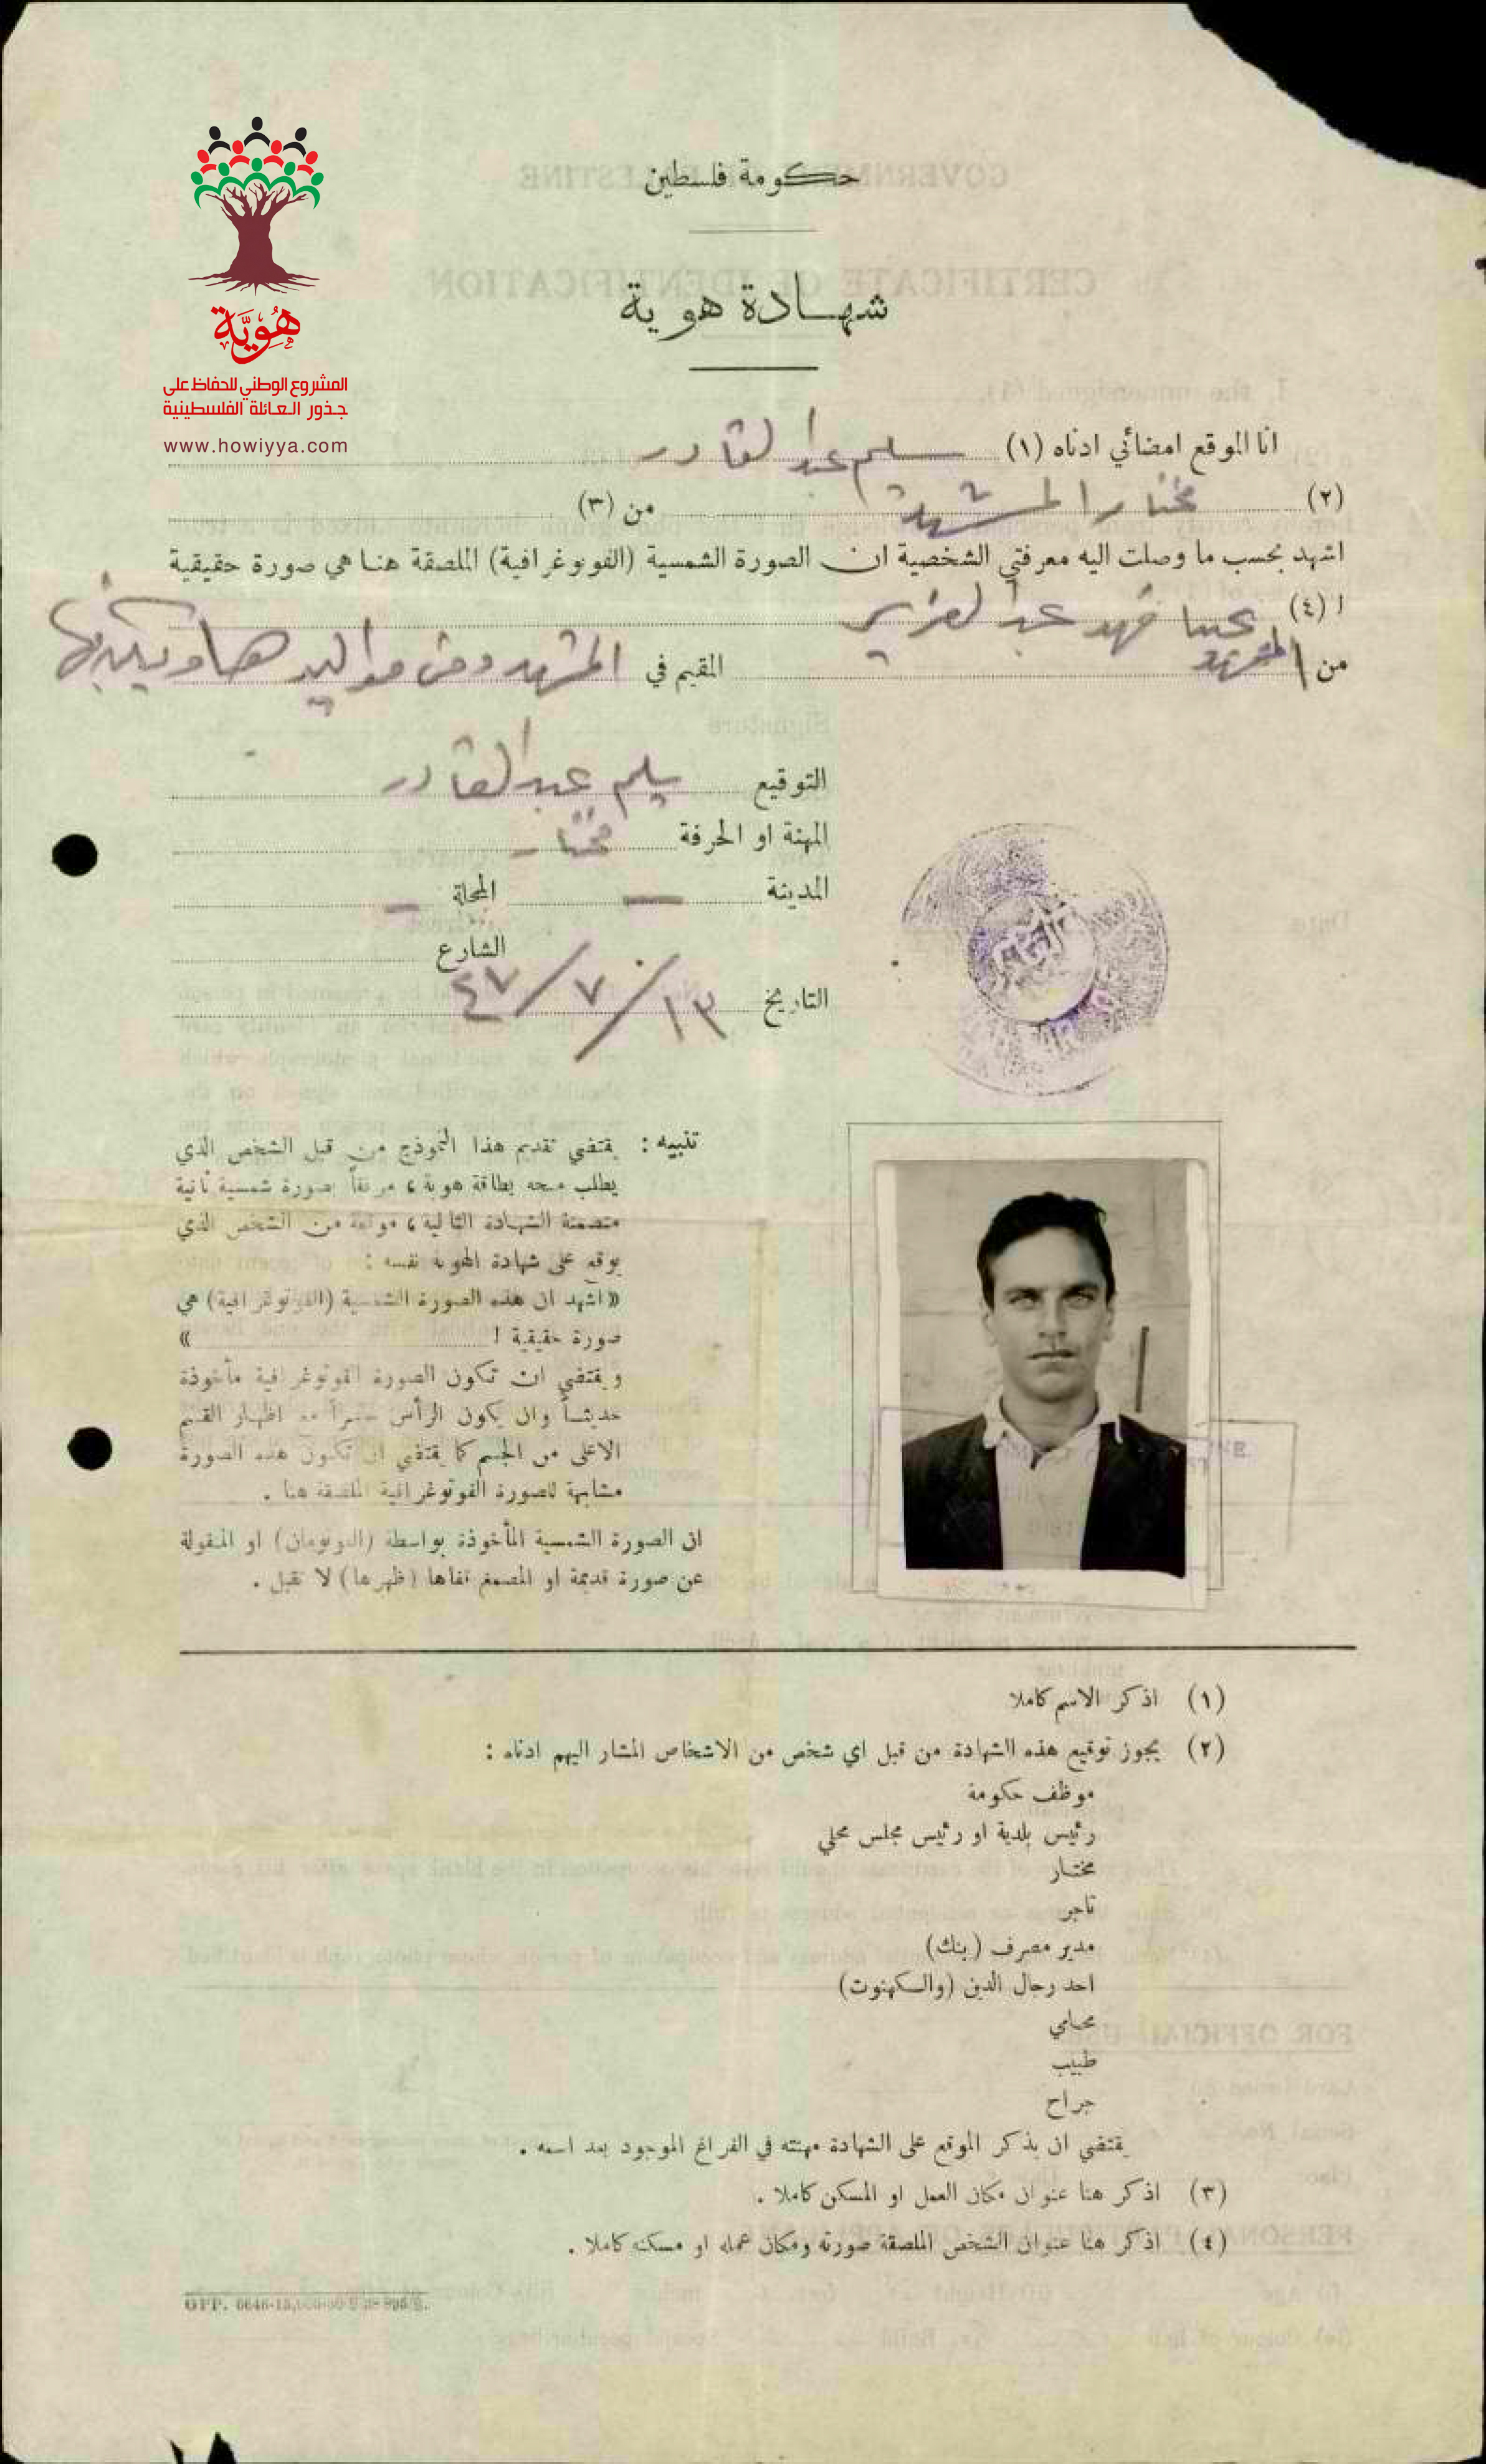 حكومة فلسطين
شهادة هوية
هُوِيَّة
المشروع الوطني للحفاظ على
جذور العائلة الفلسطينية
www.howiyya.com
انا الموقع امضائي ادناه (١) سليم عبد القادر
(٢) مختار المشهد من (٣)
اشهد بحسب ما وصلت اليه معرفتي الشخصية ان الصورة الشمسية (الفوتوغرافية) الملصقة هنا هي صورة حقيقية
ا (٤) فهد عبد العزيز
من المشهد المقيم في المشهد ومن مواليد
التوقيع سليم عبد القادر
المهنة او الحرفة مختار
المدينة — المحلة —
الشارع
التاريخ ١٣/٧/٤٧
تنبيه : يقتضي تقديم هذا النموذج من قبل الشخص الذي
يطلب منحه بطاقة هوية ، مرفقاً بصورة شمسية ثانية
متضمنة الشهادة التالية ، موقعة من الشخص الذي
يوقع على شهادة الهوية نفسه :
« اشهد ان هذه الصورة الشمسية (الفوتوغرافية) هي
صورة حقيقية ا »
ويقتضي ان تكون الصورة الفوتوغرافية مأخوذة
حديثاً وان يكون الرأس مع اظهار القسم
الاعلى من الجسم كما يقتضي ان تكون هذه الصورة
مشابهة للصورة الفوتوغرافية الملصقة هنا .
ان الصورة الشمسية المأخوذة بواسطة او المنقولة
عن صورة قديمة او المصمغ قفاها (ظهرها) لا تقبل .
(١) اذكر الاسم كاملا
(٢) يجوز توقيع هذه الشهادة من قبل اي شخص من الاشخاص المشار اليهم ادناه :
موظف حكومة
رئيس بلدية او رئيس مجلس محلي
مختار
تاجر
مدير مصرف (بنك)
احد رجال الدين (والكهنوت)
محامي
طبيب
جراح
يقتضي ان يذكر الموقع على الشهادة مهنته في الفراغ الموجود بعد اسمه .
(٣) اذكر هنا عنوان مكان العمل او المسكن كاملا .
(٤) اذكر هنا عنوان الشخص الملصقة صورته ومكان عمله او مسكنه كاملا .